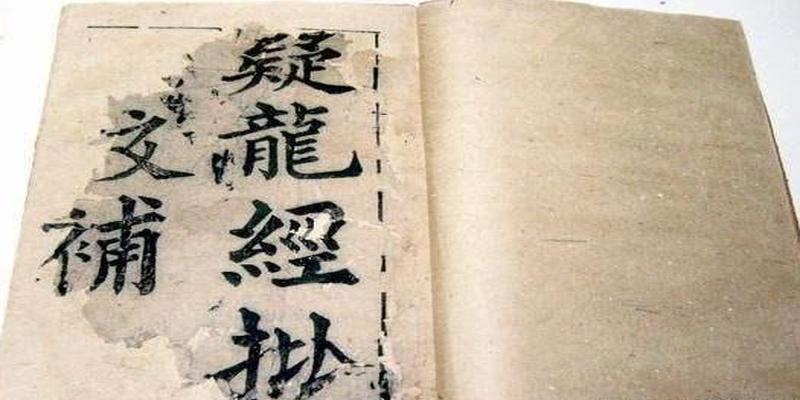 疑龍經批
文補